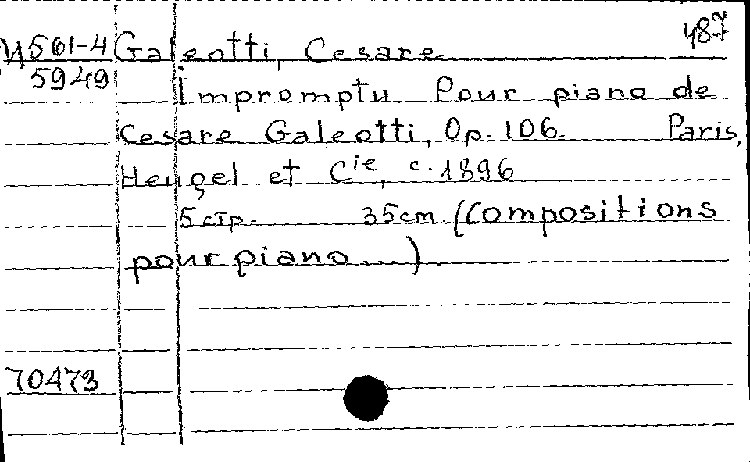 487
И561-4 Galeotti, Cesare
5949 Impromptu Pour piano de
Cesare Galeotti, Op. 106. Paris,
Heugel et Cie, c. 1896
5 стр. 35cm. (Compositions
pour piano...)
70473